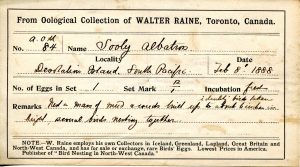 From Oological Collection of WALTER RAINE, Toronto, Canada.
a.o.u.
No. 84. Name Sooty Albatross
Locality Date
Desolation Island, South Pacific Feb 8th 1888
No. of Eggs in Set 1 Set Mark 1 Incubation fresh
Identity bird taken
Remarks Nest a mass of mud & weeds built up to about
height, several birds nesting together.
NOTE.—W. Raine employs his own Collectors in Iceland, Greenland, Lapland, Great Britain and
North-West Canada, and has for sale or exchange, rare Birds' Eggs. Lowest Prices in America.
Publisher of "Bird Nesting in North-West Canada."